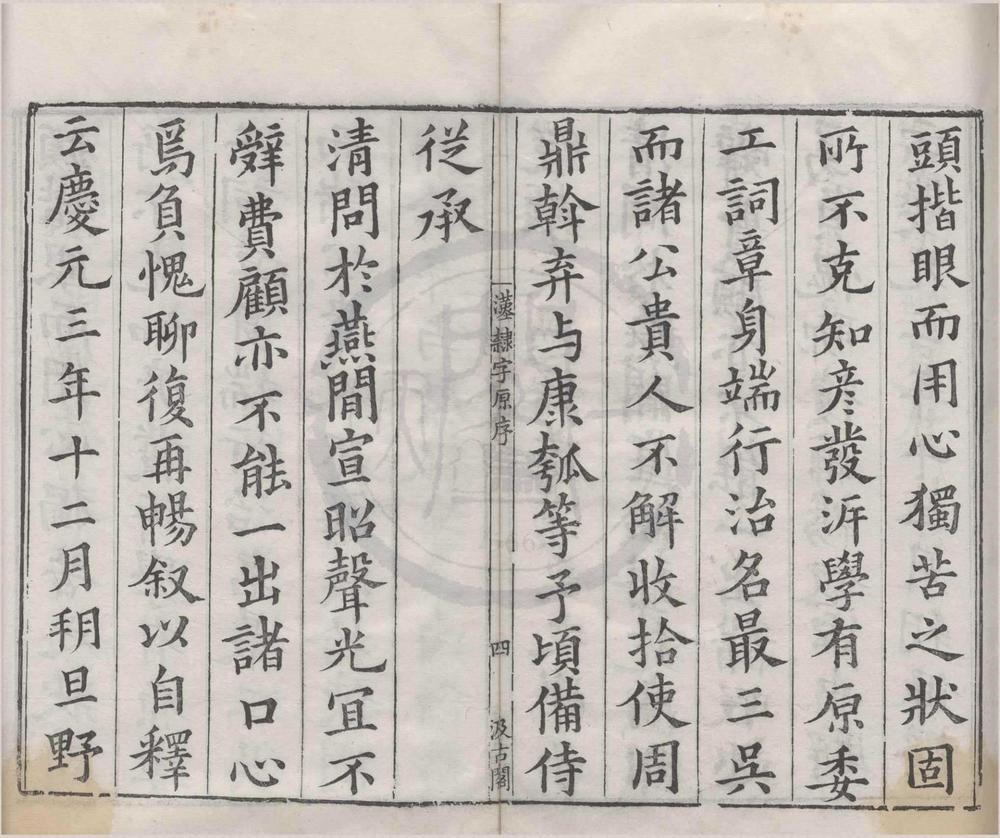 頭揩眼而用心獨苦之狀固
所不克知彦發泝學有原委
工詞章身端行治名最三吳
而諸公貴人不解收拾使周
鼎斡弃与康瓠等予頃備侍
從承
漢隸字原序 四 汲古閣
清問於燕閒宣昭聲光宜不
辤費顧亦不能一出諸口心
爲負愧聊復再暢叙以自釋
云慶元三年十二月朔旦野